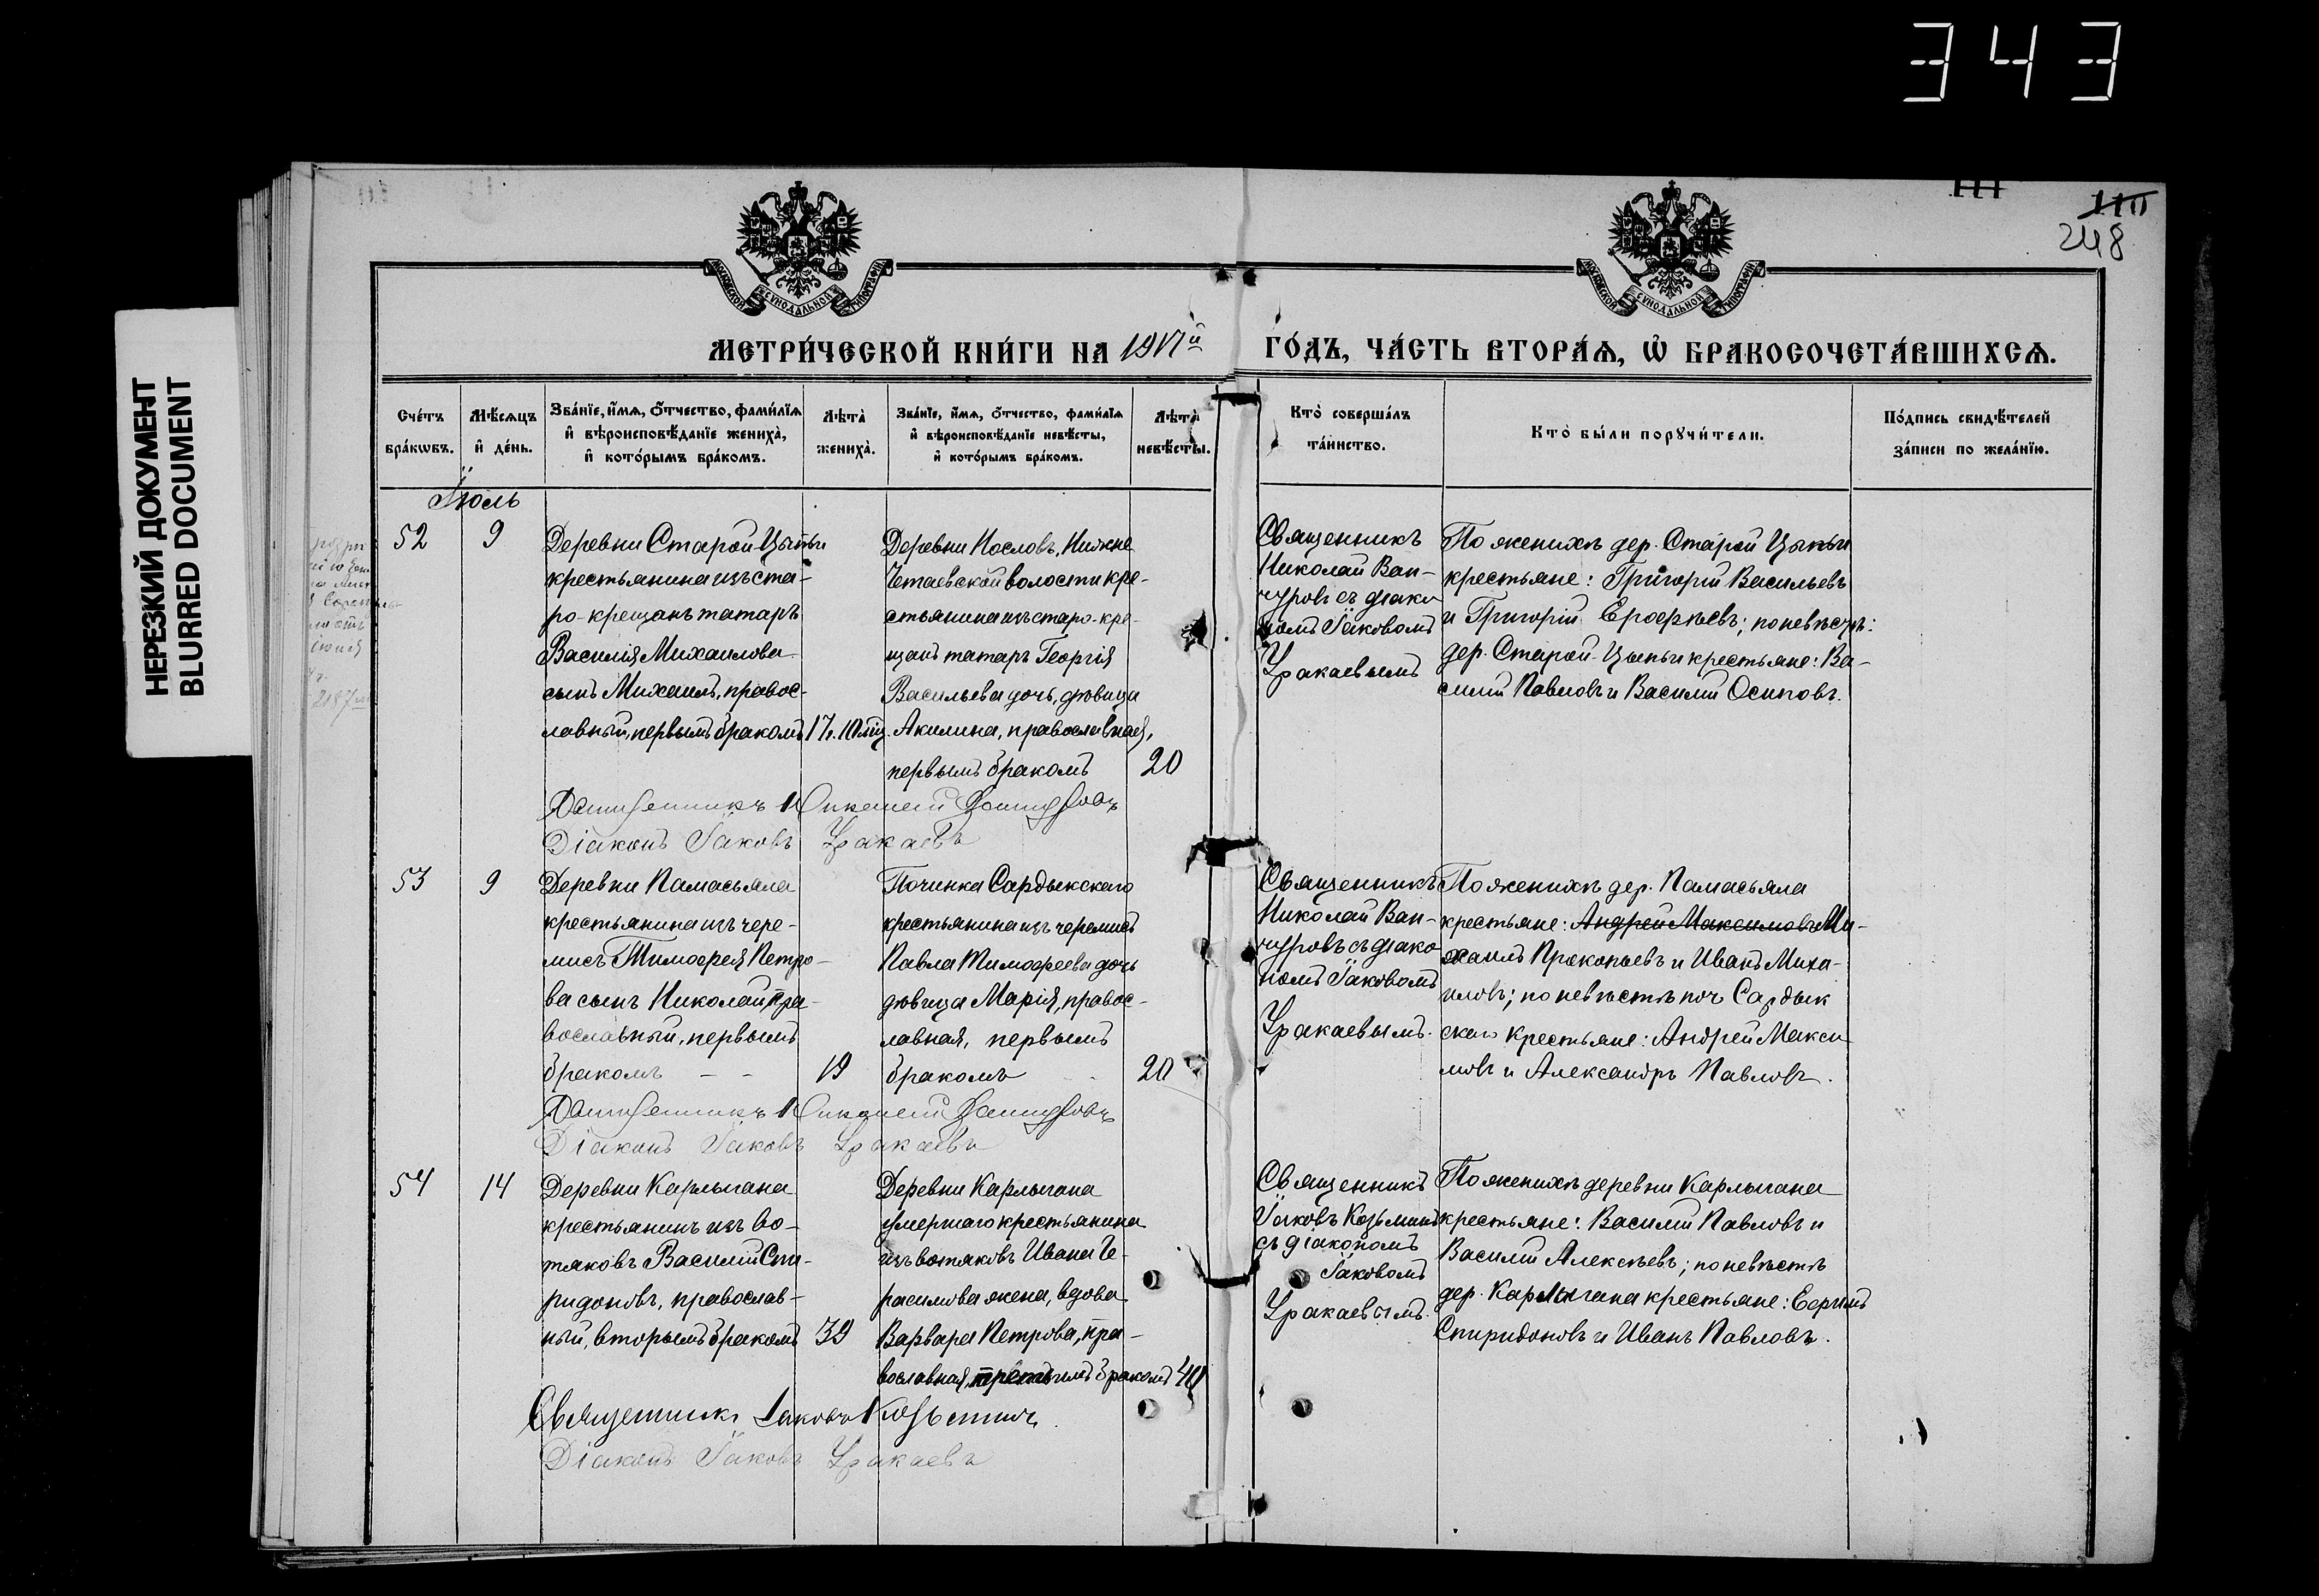 343
НЕРЕЗКИЙ ДОКУМЕНТ
BLURRED DOCUMENT
111
248
МОСКОВСКОЙ СѴНОДАЛЬНОЙ ТИПОГРАФІИ
МОСКОВСКОЙ СѴНОДАЛЬНОЙ ТИПОГРАФІИ
МЕТРИ́ЧЕСКОЙ КНИ́ГИ НА 1917й ГО́ДЪ, ЧА́СТЬ ВТОРА́Ѧ, Ѡ҆ БРАКОСОЧЕТА́ВШИХСѦ.
Сче́тъ
бра́кѡвъ.
Мѣ́сѧцъ
и҆ де́нь.
Зва́нїе, и҆́мѧ, ѻ҆́тчество, фами́лїѧ
и҆ вѣроисповѣ́данїе жениха̀,
и҆ кото́рымъ бра́комъ.
Лѣта̀
жениха̀.
Зва́нїе, и҆́мѧ, ѻ҆́тчество, фами́лїѧ
и҆ вѣроисповѣ́данїе невѣ́сты,
и҆ кото́рымъ бра́комъ.
Лѣта̀
невѣ́сты.
Кто̀ соверша́лъ
та́инство.
Кто̀ бы́ли порꙋчи́тели.
По́дпись свидѣ́телей
за́писи по жела́нїю.
Іюль
52
9
Деревни Старой Цыпьи
крестьянина изъ ста-
ро-крещанъ татаръ
Василія Михаилова
сынъ Михаилъ, правос-
лавный, первымъ бракомъ
17 л. 10 мѣц.
Деревни Нословъ, Нижне
Четаевской волости кре-
стьянина изъ старо-кре-
щанъ татаръ Георгія
Васильева дочь, дѣвица
Акилина, православная,
первымъ бракомъ
20
Священникъ
Николай
съ діако
номъ Іаковомъ
Уракаевымъ
По женихѣ дер. Старой Цыпьи
крестьяне: Григорій Васильевъ
и Григорій Ерофѣевъ; по невѣстѣ:
дер. Старой-Цыпьи крестьяне: Ва-
силій Павловъ и Василій Осиповъ.
Священникъ Николай
Діаконъ Іаковъ Уракаевъ
53
9
Деревни Памасьяла
крестьянина изъ чере-
мисъ Тимофея Петро-
ва сынъ Николай, пра-
вославный, первымъ
бракомъ - -
19
Починка Сардыкскаго
крестьянина изъ черемисъ
Павла Тимофеева дочь
дѣвица Марія, правос-
лавная, первымъ
бракомъ
20
Священникъ
Николай
съ діако
номъ Іаковомъ
Уракаевымъ.
По женихѣ дер. Памасьяла
крестьяне: Андрей Максимовъ Ми-
хаилъ Прокопьевъ и Иванъ Миха-
иловъ; по невѣстѣ поч. Сардык
скаго крестьяне: Андрей Макси
мовъ и Александръ Павловъ.
Священникъ Николай
Діаконъ Іаковъ Уракаевъ
54
14
Деревни Карлыгана
крестьянинъ изъ во-
тяковъ Василій Спи-
ридоновъ, православ-
ный, вторымъ бракомъ
39
Деревни Карлыгана
умершаго крестьянина
изъ вотяковъ Ивана Ге-
расимова жена, вдова
Варвара Петрова, пра-
вославная, третьимъ бракомъ
Священникъ
Іаковъ Козьминъ
съ діакономъ
Іаковомъ
Уракаевымъ.
По женихѣ деревни Карлыгана
крестьяне: Василій Павловъ и
Василій Алексѣевъ; по невѣстѣ
дер. Карлыгана крестьяне:
Спиридоновъ и Иванъ Павловъ.
Священникъ Іаковъ Козьминъ.
Діаконъ Іаковъ Уракаевъ